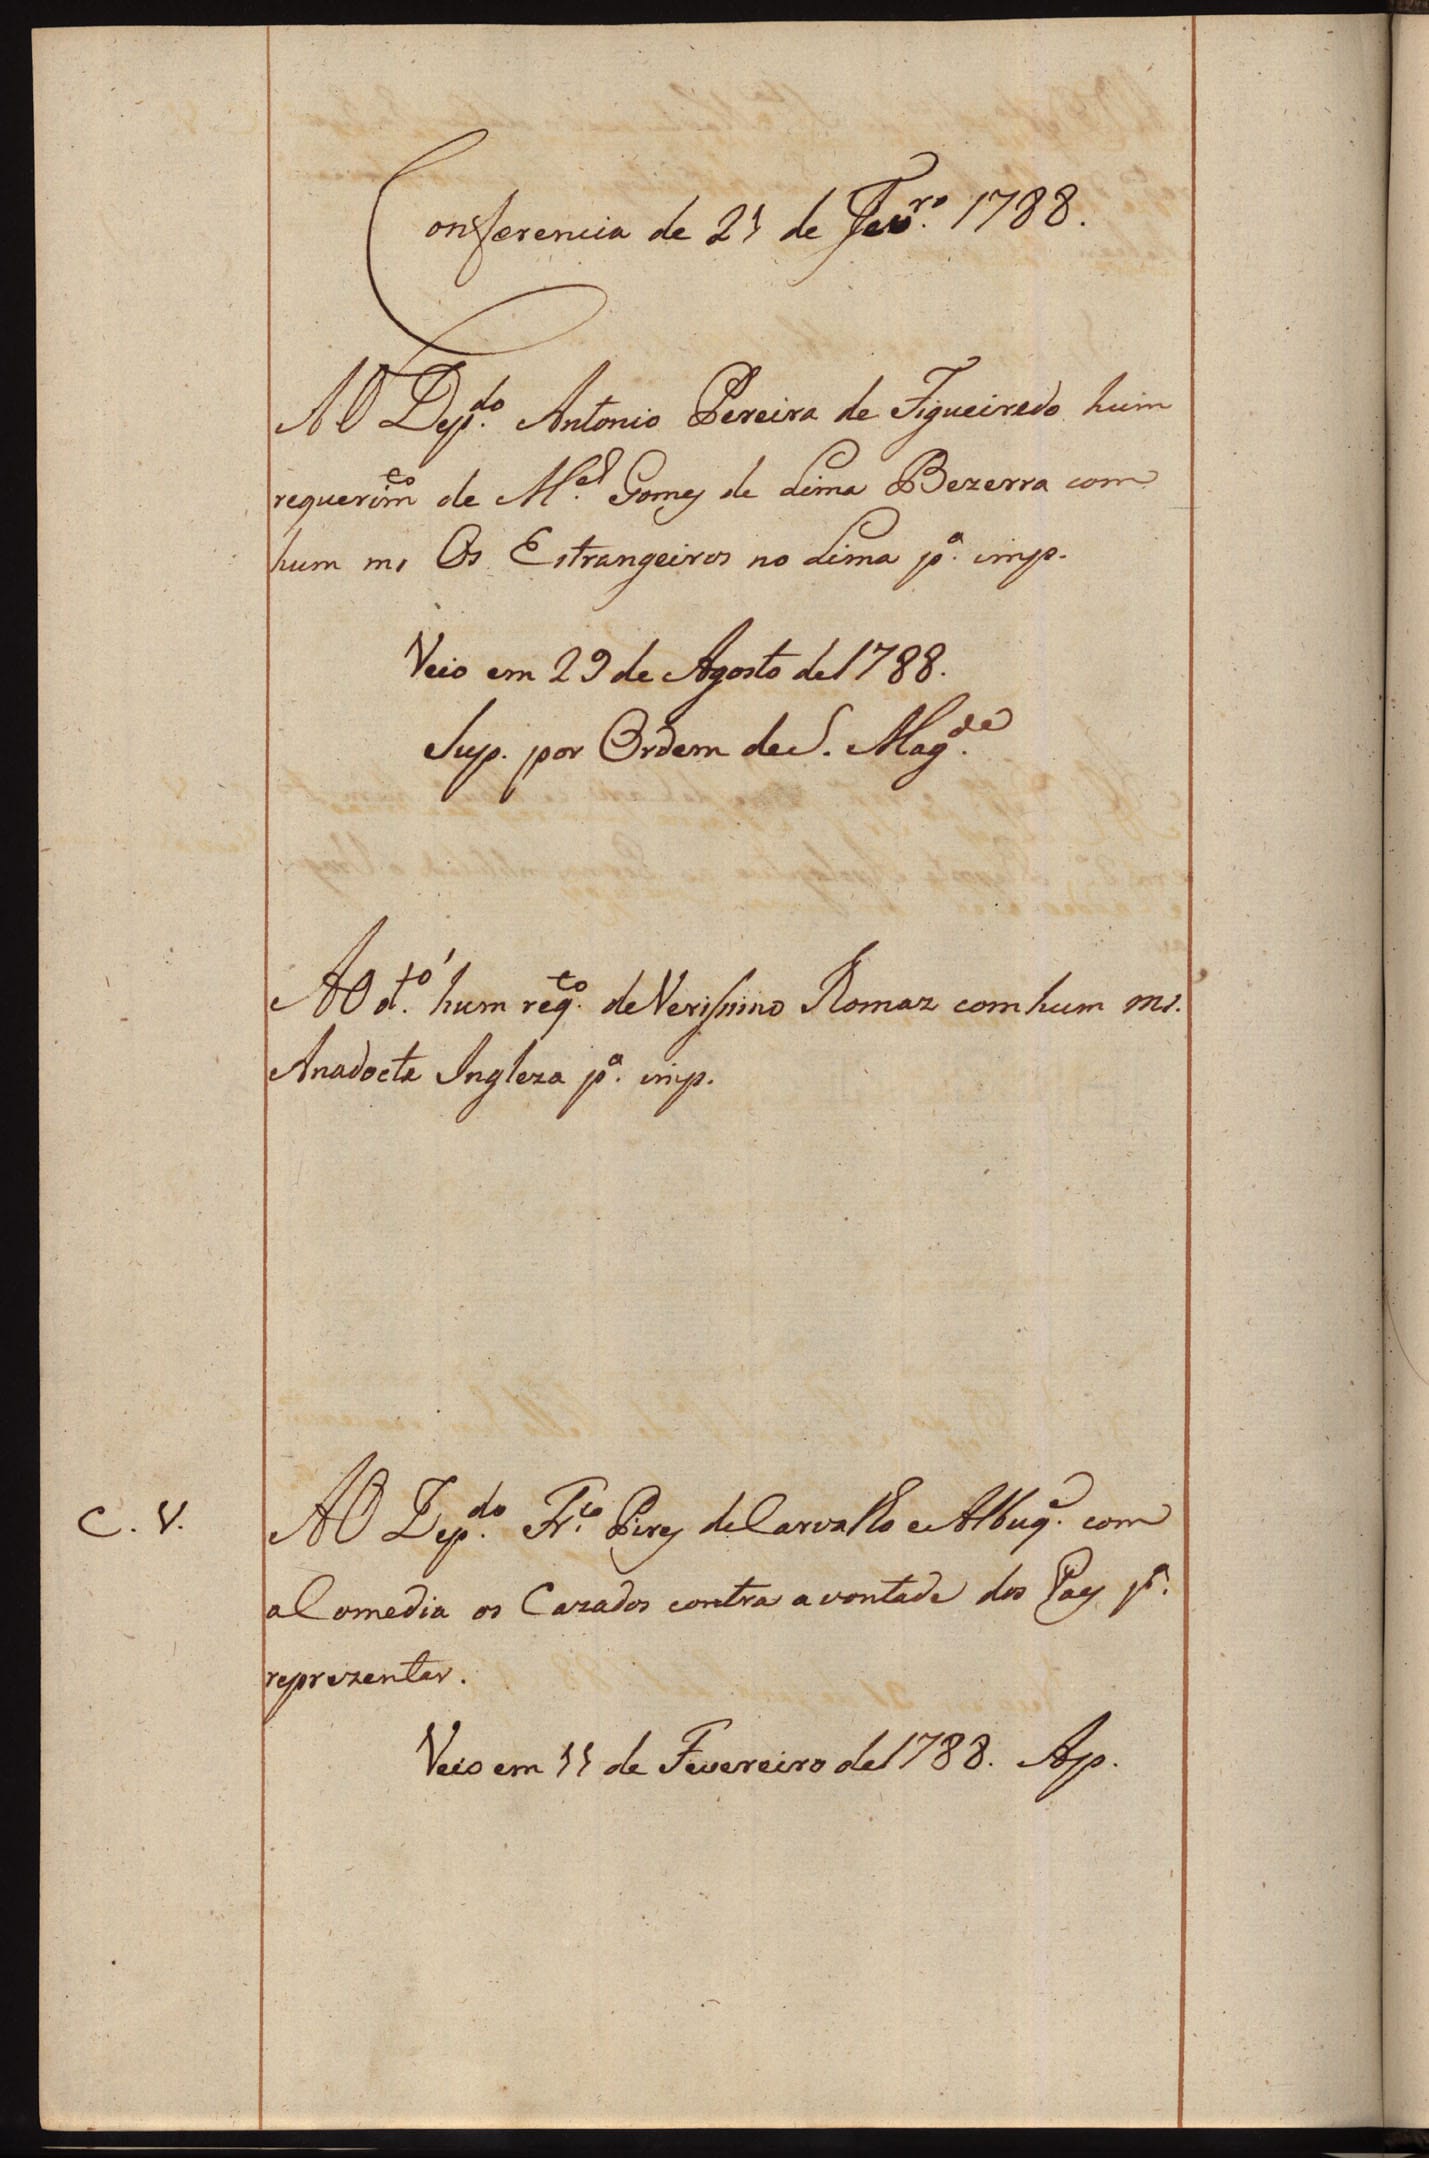 Conferencia de 21 de Fev.ro 1788.
AO Dep.do Antonio Pereira de Figueiredo hum
requerim.to de M.el Gomes de Lima Bezerra com
hum ms Os Estrangeiros no Lima p.a imp.
Veio em 29 de Agosto de 1788.
Sup. por Ordem de S. Mag.de
AO d.to hum req.to de Verissimo Romaz com hum ms.
Anadocta Ingleza p.a imp.
C. V.
AO Dep.do Fr.co Pires de Carvalho e Albuq.e com
a Comedia os Cazados contra a vontade dos Pays p.a
reprezentar.
Veio em 11 de Fevereiro de 1788. Ap.